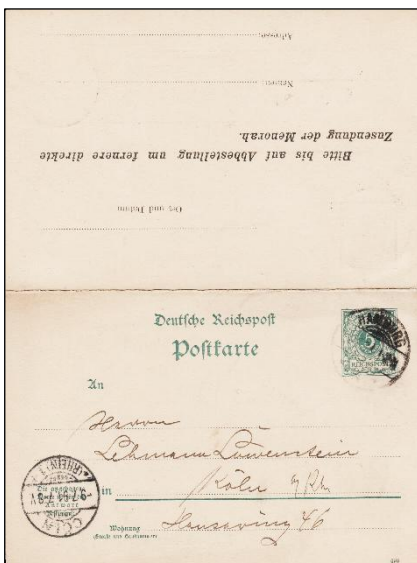 Adresse:
Namen:
Bitte bis auf Abbestellung um fernere direkte
Zusendung der Menorah.
Ort und Datum
Deutsche Reichspost
Postkarte
HAMBURG
5
REICHSPOST
An
Herrn
Lehmann Löwenstein
in Köln a/Rh
Wohnung
Hansaring 46
CÖLN
(RHEIN)